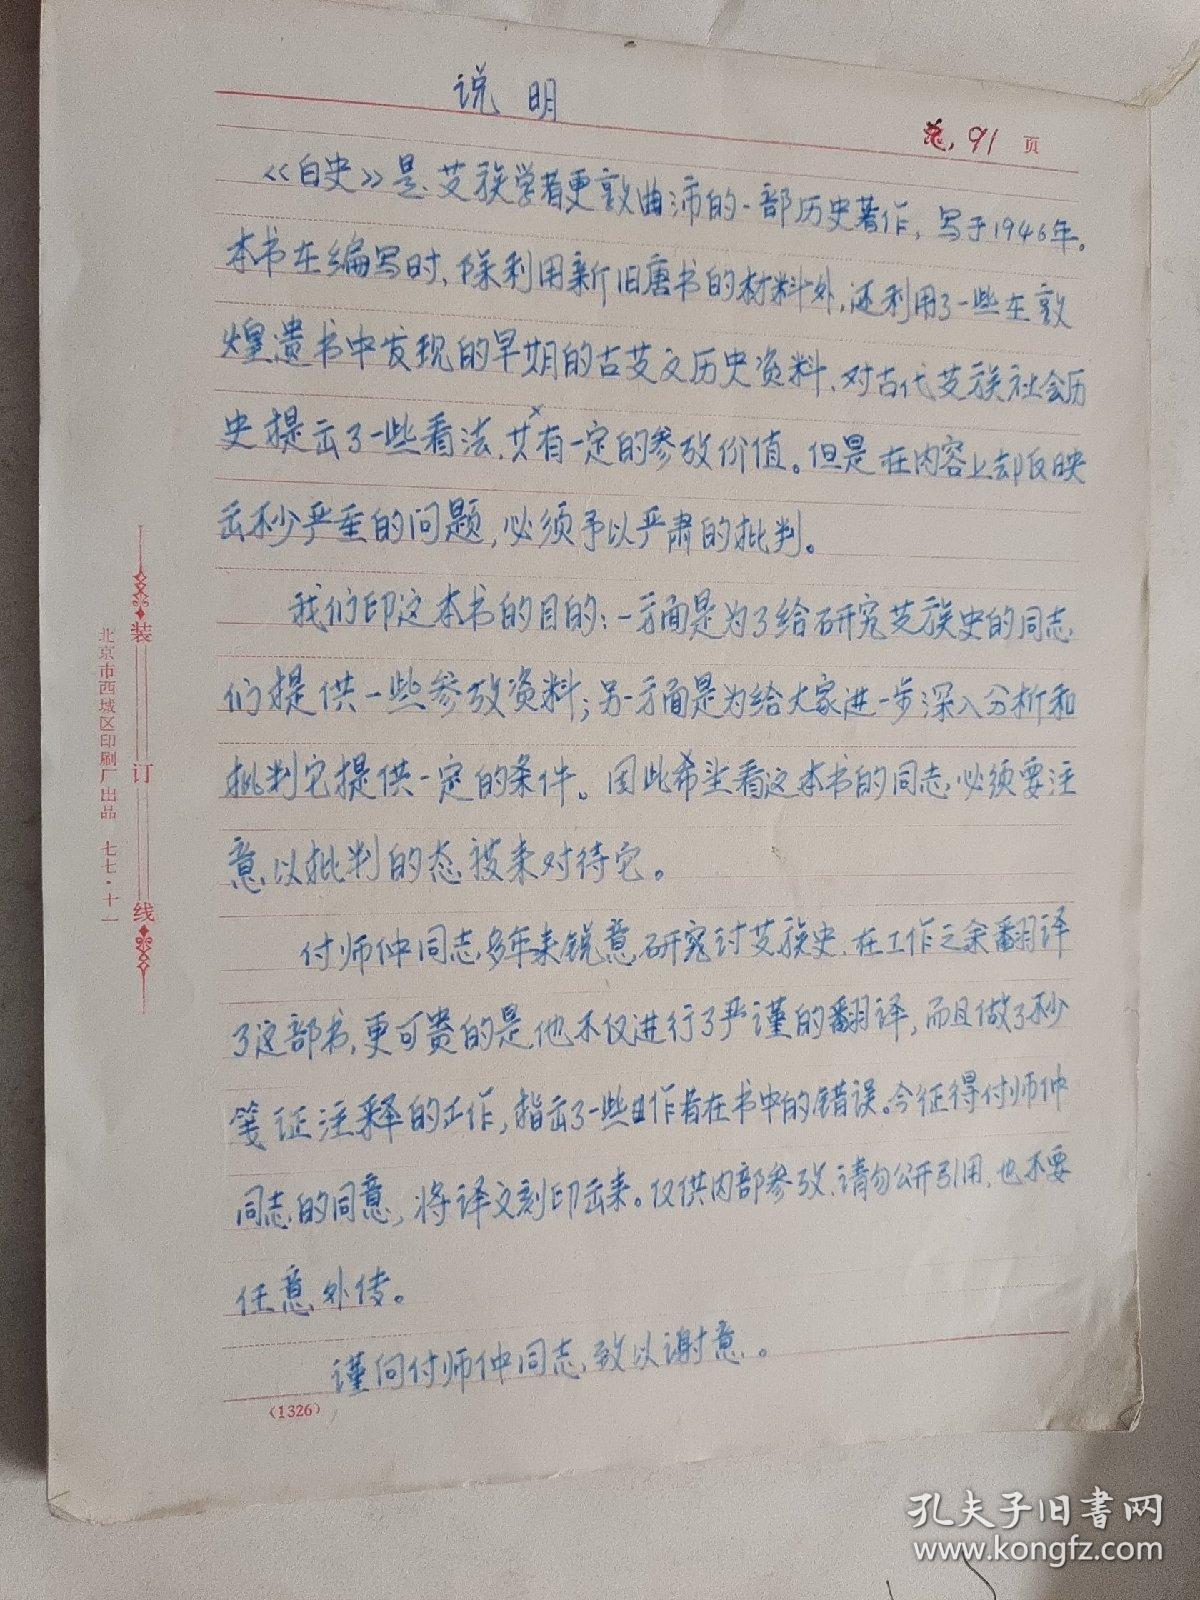 说明
总.91页
《白史》是艾族学者更敦曲沛的一部历史著作,写于1946年。
本书在编写时,除利用新旧唐书的材料外,还利用了一些在敦
煌遗书中发现的早期的古艾文历史资料,对古代艾族社会历
史提出了一些看法,艾有一定的参考价值。但是在内容上却反映
出不少严重的问题,必须予以严肃的批判。
我们印这本书的目的:一方面是为了给研究艾族史的同志
们提供一些参考资料;另一方面是为给大家进一步深入分析和
批判它提供一定的条件。因此希望看这本书的同志必须要注
意以批判的态度来对待它。
付师仲同志多年来锐意研究讨艾族史,在工作之余翻译
了这部书,更可贵的是他不仅进行了严谨的翻译,而且做了不少
笺证注释的工作,指出了一些作者在书中的错误。今征得付师仲
同志的同意,将译文刻印出来。仅供内部参考,请勿公开引用,也不要
任意外传。
谨向付师仲同志致以谢意。
(1326)
装订线
北京市西城区印刷厂出品 七七·十一
孔夫子旧书网
www.kongfz.com